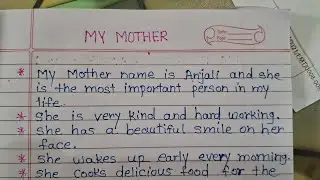 MY MOTHER
Date
Page
* My Mother name is Anjali and she
is the most important person in my
life.
* She is very kind and hard working.
* She has a beautiful smile on her
face.
* She wakes up early every morning.
* She cooks delicious food for the